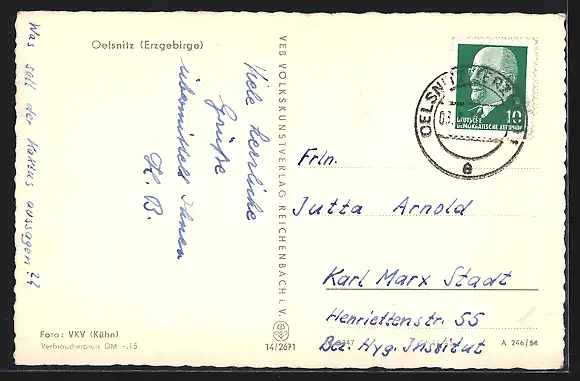 Oelsnitz (Erzgebirge)
Was soll der Kaktus aussagen??
Viele herzliche
Grüße
übermittelt Ihnen
H. B.
Foto: VKV (Kühn)
Verbraucherpreis DM -.15
VEB VOLKSKUNSTVERLAG REICHENBACH i. V.
14/2671
OELSNITZ (ERZ
e
10
DEUTSCHE
DEMOKRATISCHE REPUBLIK
Frln.
Jutta Arnold
Karl Marx Stadt
Henriettenstr. 55
Bez. Hyg. Institut
A 246/58